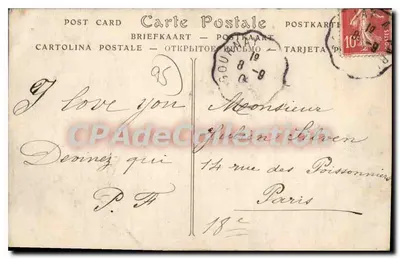 POST CARD Carte Postale POSTKARTE
BRIEFKAART — POSTKAART
CARTOLINA POSTALE — ОТКРЫТОЕ ПИСЬМО — TARJETA PO
95
GOURNAY
19
8 - 9
10
I love you
Devinez qui
P. F
Monsieur
14 rue des Poissonniers
Paris
18e
CPADeCollection